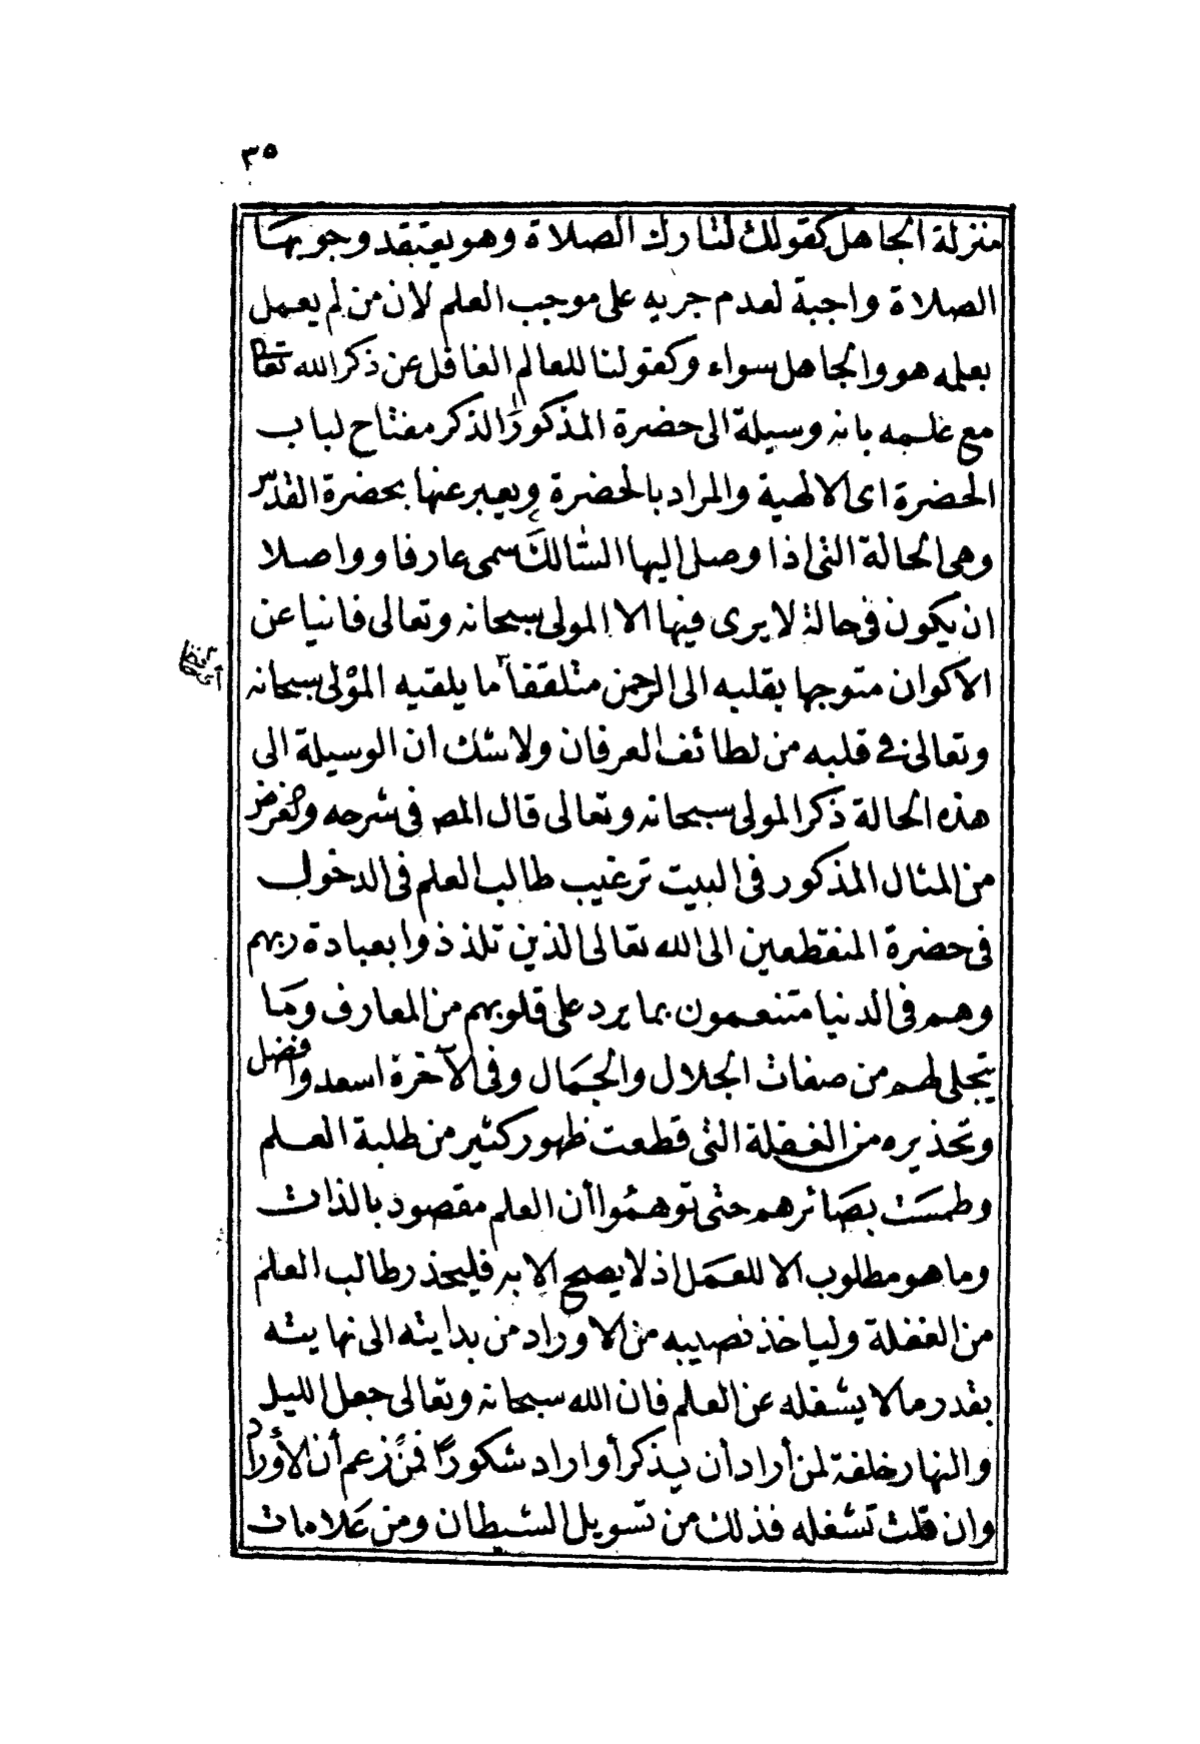 ٣٥
منزلة الجاهل كقولك لتارك الصلاة وهو يعتقد وجوبها
الصلاة واجبة لعدم جريه على موجب العلم لان من لم يعمل
بعلمه هو والجاهل سواء وكقولنا للعالم الغافل عن ذكر الله تعا
مع علمه بانه وسيلة الى حضرة المذكور الذكر مفتاح لباب
الحضرة اى الالهية والمراد بالحضرة ويعبر عنها بحضرة القدس
وهى الحالة التى اذا وصل اليها السَّالك سمى عارفا وواصلا
ان يكون فى حالة لا يرى فيها الا المولى سبحانه وتعالى فانيا عن
الاكوان متوجها بقلبه الى الرحمن متلقفا ما يلقيه المؤلى سبحانه
وتعالى فى قلبه من لطائف العرفان ولا شك ان الوسيلة الى
هذه الحالة ذكر المولى سبحانه وتعالى قال المصـ فى شرحه والغرض
من المثال المذكور فى البيت ترغيب طالب العلم فى الدخول
فى حضرة المنقطعين الى الله تعالى الذين تلذذوا بعبادة ربهم
وهم فى الدنيا متنعمون بما يرد على قلوبهم من المعارف وَمَا
يتجلى لهم من صفات الجلال والجَمال وفى الآخرة اسعد وافضل
وتحذيره من الغفلة التى قطعت ظهور كثير من طلبة العلم
وطمسَت بصَائرهم حتى توهمُوا أن العلم مقصود بالذات
وما هو مطلوب الا للعمَل اذ لا يصح الا به فليحذر طالب العلم
من الغفلة ولياخذ نصيبه من الاوراد من بدايته الى نهايته
بقدر ما لا يشغله عن العلم فان الله سبحانه وتعالى جعل الليل
والنهار خلفة لمن أراد أن يذكر أو اراد شكورًا فمن زعم أن الأوراد
وان قلت تشغله فذلك من تسويل الشيطان ومن عَلامات